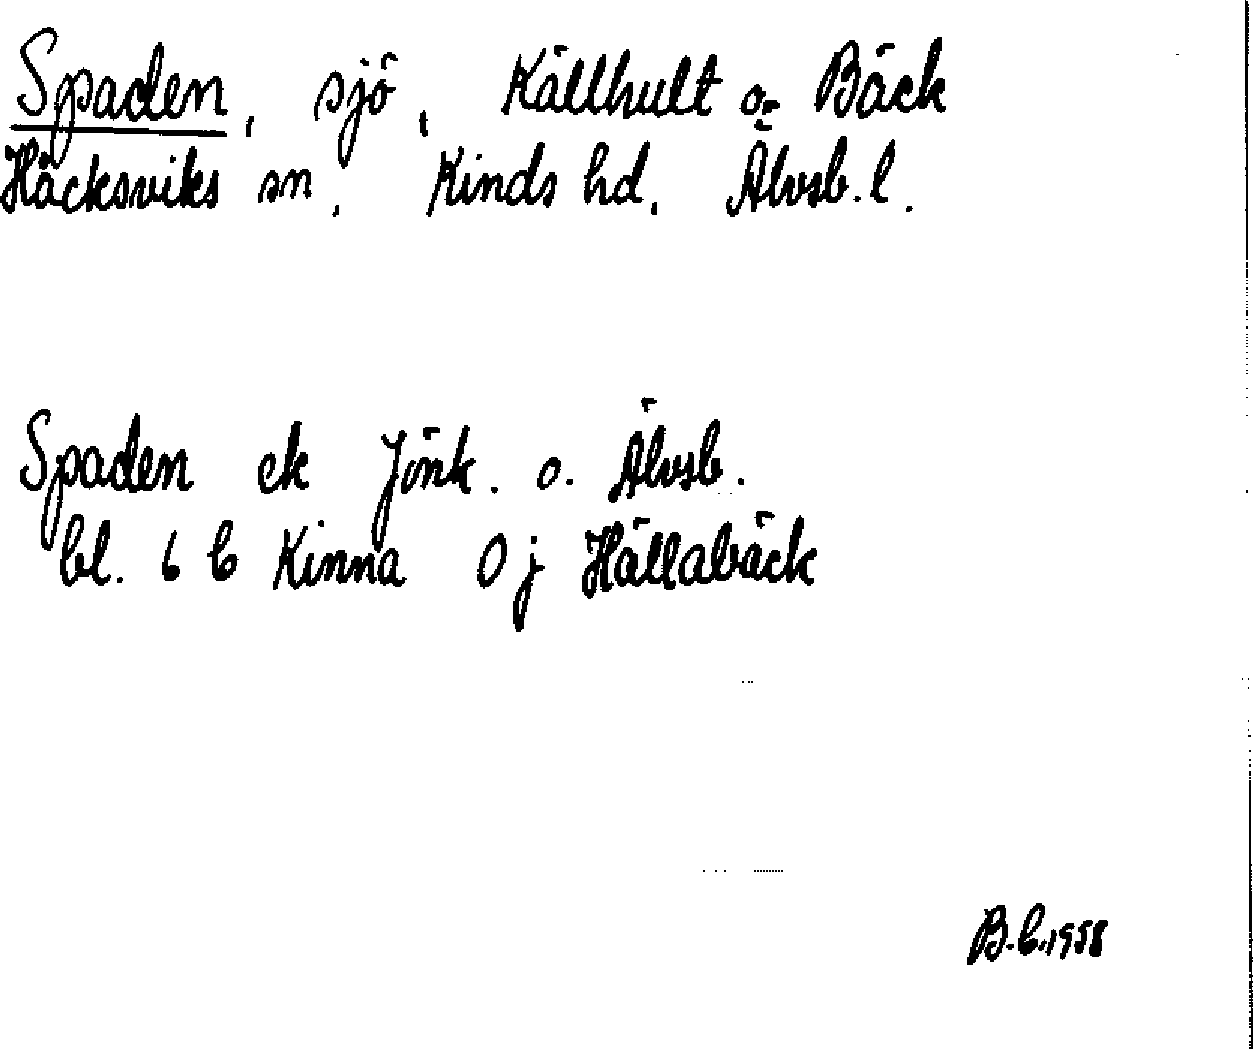 Spaden, sjö, Källhult o. Bäck
Häcksviks sn, Kinds hd, Älvsb. l.
Spaden ek Jönk. o. Älvsb.
bl. 6 b Kinna 0 j Hällabäck
B.L.1958